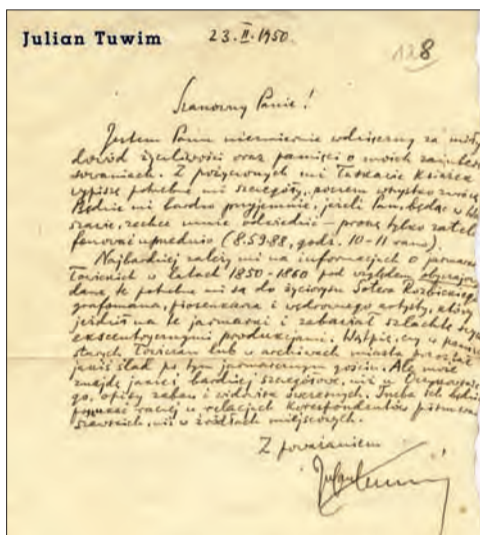 Julian Tuwim
23. II. 1950.
128
Szanowny Panie!
Jestem Panu niezmiernie wdzięczny za miły
dowód życzliwości oraz pamięci o moich zaintere-
sowaniach. Z pożyczonych mi łaskawie książek
wypiszę potrzebne mi szczegóły, poczem wszystko zwrócę.
Będzie mi bardzo przyjemnie, jeżeli Pan, będąc w
szawie, zechce mnie odwiedzić – proszę tylko zatele-
fonować uprzednio (8.59-88, godz. 10-11 rano).
Najbardziej zależy mi na informacjach o jarmarkach
łowickich w latach 1850-1860 pod względem obyczajowym
dane te potrzebne mi są do życiorysu Sotera Rozbickiego
grafomana, piosenkarza i wędrownego artysty, który
jeździł na te jarmarki i zabawiał szlachtę swymi
ekscentrycznymi produkcjami. Wątpię, czy w pamięci
starych łowiczan lub w archiwach miasta pozostał
jakiś ślad po tym jarmarcznym gościu. Ale może
znajdę jakieś bardziej szczegółowe, niż u
go, opisy zabaw i widowisk ówczesnych. Trzeba ich będzie
poszukać raczej w relacjach korespondentów pism war-
szawskich, niż w źródłach miejscowych.
Z poważaniem